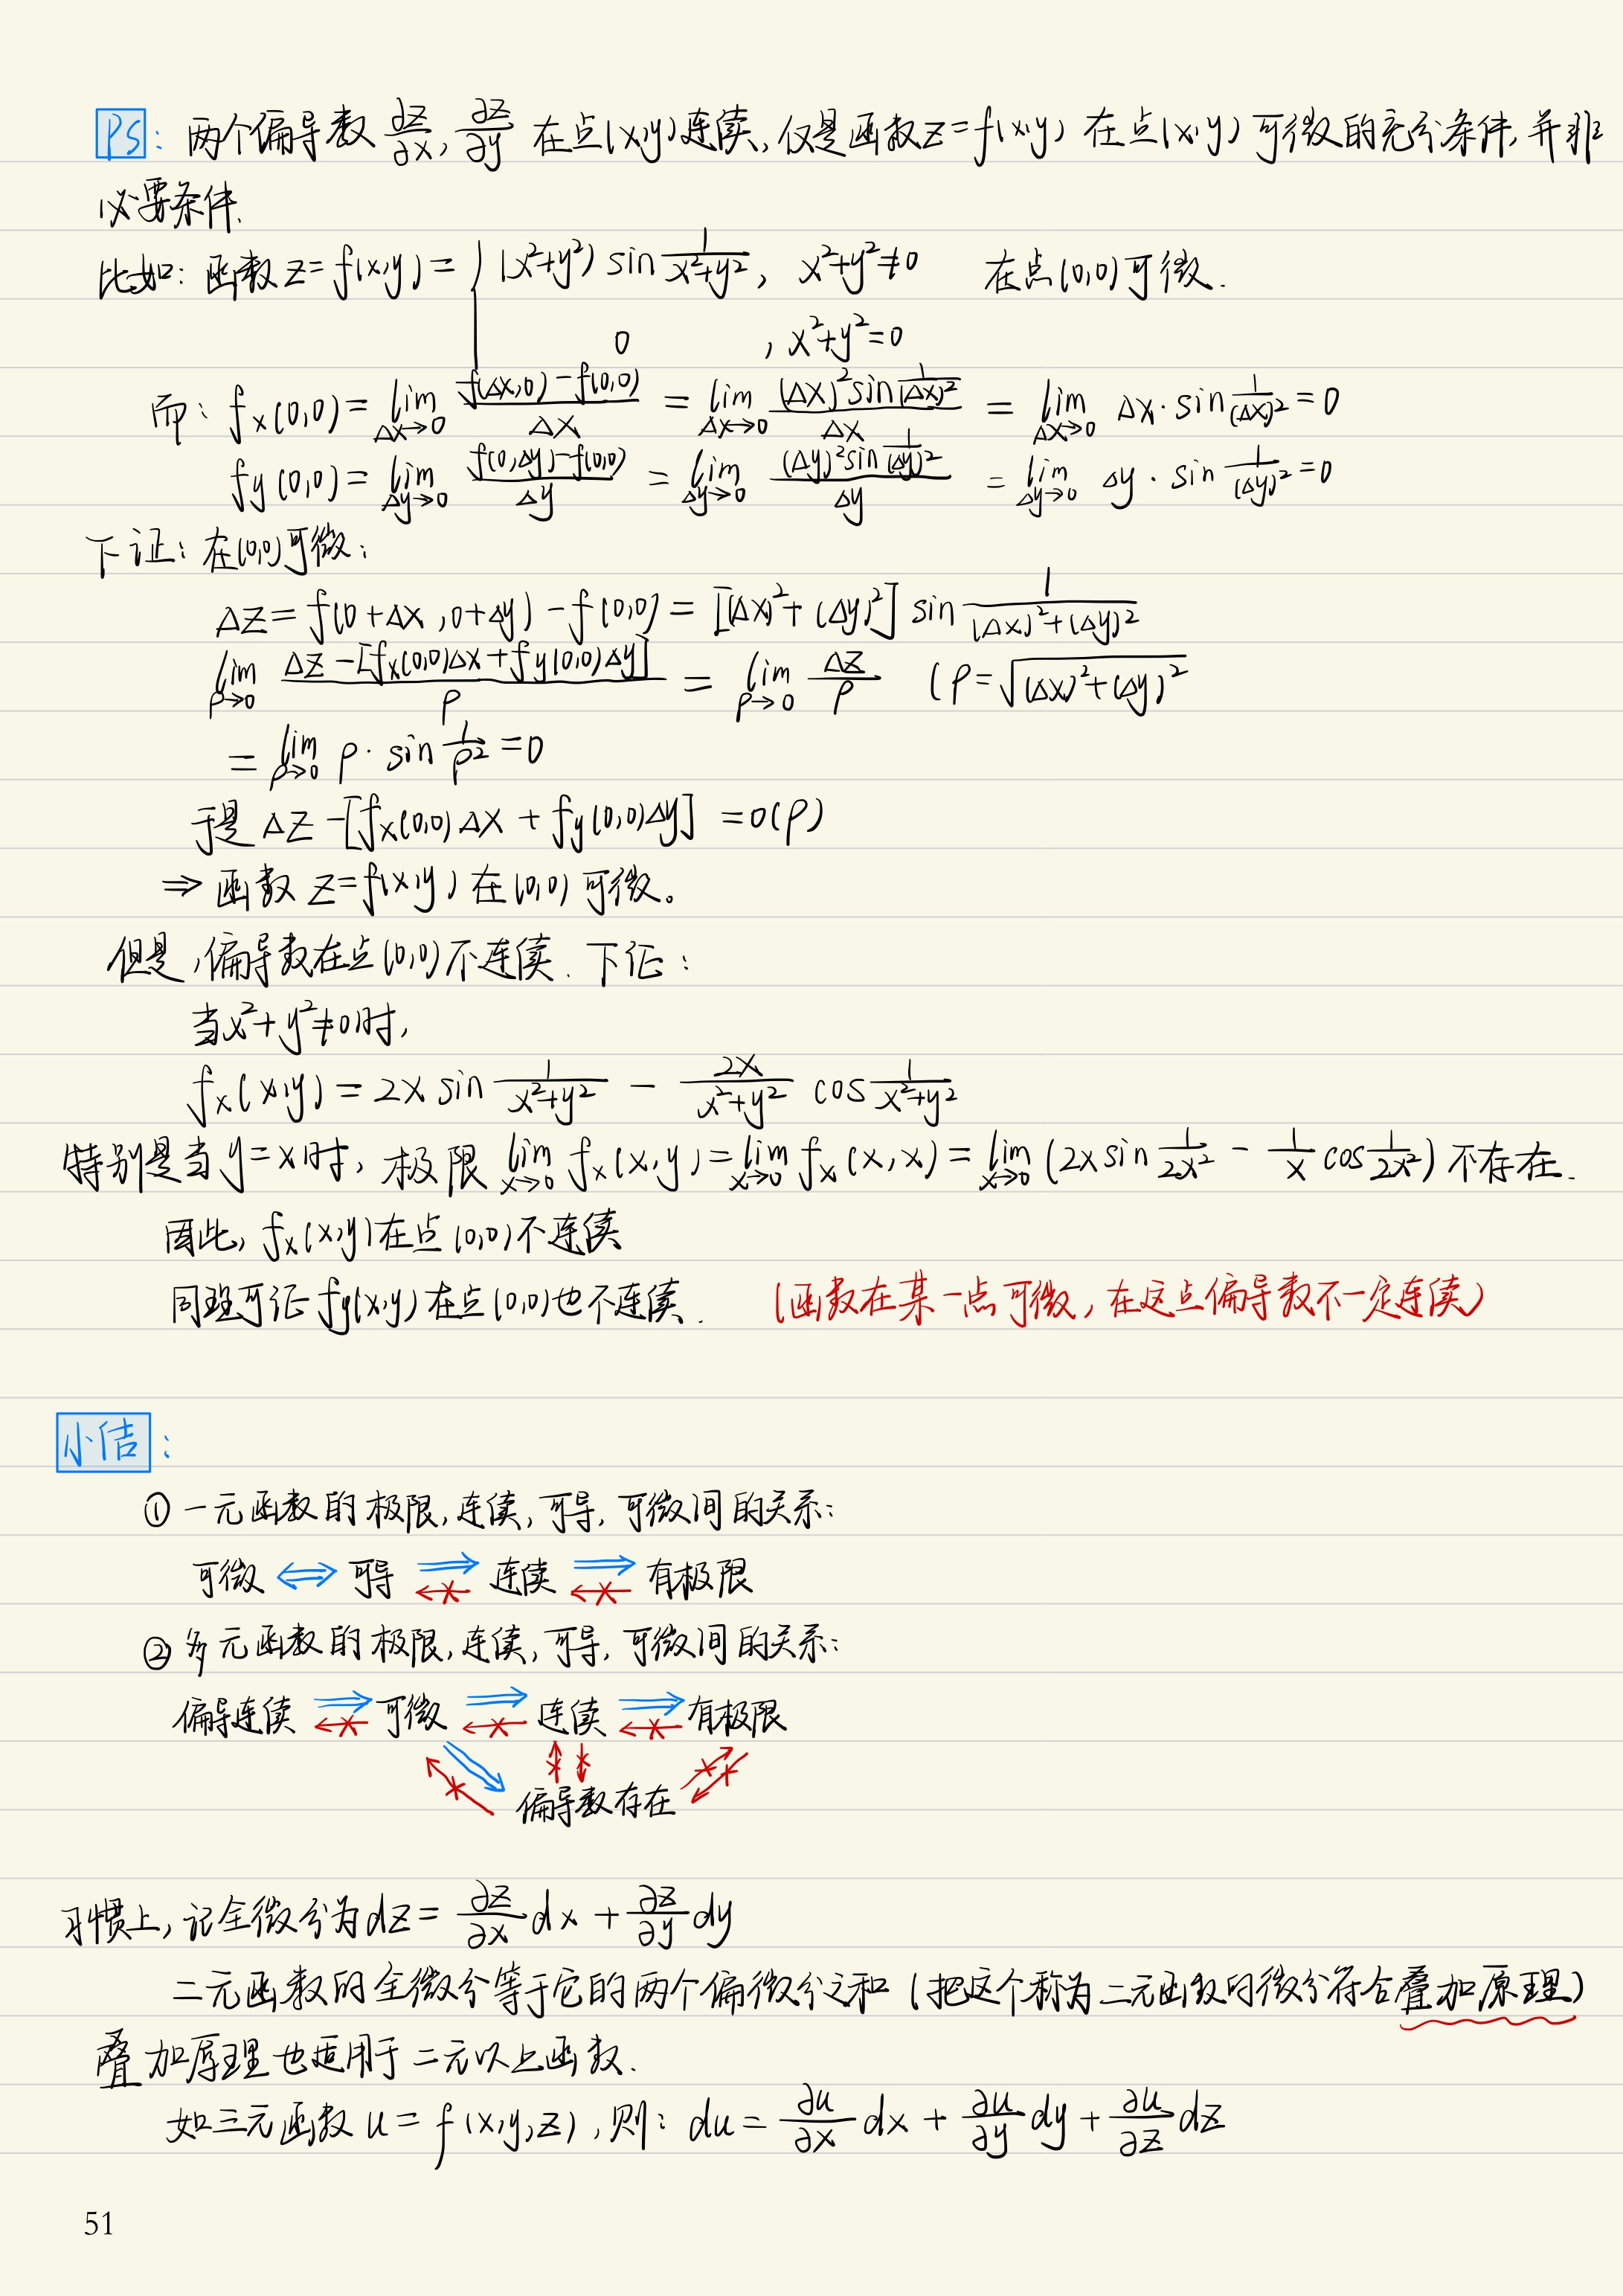 PS：两个偏导数 ∂z/∂x, ∂z/∂y 在点(x,y)连续, 仅是函数z=f(x,y) 在点(x,y) 可微的充分条件, 并非
必要条件.
比如：函数 z=f(x,y)= { (x²+y²) sin 1/(x²+y²), x²+y²≠0 在点(0,0)可微.
0 , x²+y²=0
而：fx(0,0)= lim Δx→0 (f(Δx,0)-f(0,0))/Δx = lim Δx→0 ((Δx)² sin 1/(Δx)²)/Δx = lim Δx→0 Δx·sin 1/(Δx)² =0
fy(0,0)= lim Δy→0 (f(0,Δy)-f(0,0))/Δy = lim Δy→0 ((Δy)² sin 1/(Δy)²)/Δy = lim Δy→0 Δy·sin 1/(Δy)² =0
下证：在(0,0)可微：
Δz=f(0+Δx,0+Δy)-f(0,0)=[(Δx)²+(Δy)²] sin 1/((Δx)²+(Δy)²)
lim ρ→0 (Δz-[fx(0,0)Δx+fy(0,0)Δy])/ρ = lim ρ→0 Δz/ρ (ρ=√((Δx)²+(Δy)²)
= lim ρ→0 ρ·sin 1/ρ² =0
于是 Δz-[fx(0,0)Δx+fy(0,0)Δy] =o(ρ)
⇒ 函数 z=f(x,y) 在(0,0) 可微。
但是,偏导数在点(0,0)不连续. 下证：
当x²+y²≠0时,
fx(x,y)=2x sin 1/(x²+y²) - 2x/(x²+y²) cos 1/(x²+y²)
特别是当 y=x时, 极限 lim x→0 fx(x,y)= lim x→0 fx(x,x)= lim x→0 (2x sin 1/2x² - 1/x cos 1/2x²) 不存在.
因此, fx(x,y)在点(0,0)不连续
同理可证 fy(x,y)在点(0,0)也不连续. (函数在某一点可微, 在这点偏导数不一定连续)
小结：
① 一元函数的极限,连续,可导,可微间的关系：
可微 ⇔ 可导 ⇒ 连续 ⇒ 有极限
② 多元函数的极限,连续,可导,可微间的关系：
偏导连续 ⇒ 可微 ⇒ 连续 ⇒ 有极限
偏导数存在
习惯上, 记全微分为dz= ∂z/∂x dx + ∂z/∂y dy
二元函数的全微分等于它的两个偏微分之和 (把这个称为二元函数的微分符合叠加原理)
叠加原理也适用于二元以上函数.
如三元函数 u=f(x,y,z), 则：du= ∂u/∂x dx + ∂u/∂y dy + ∂u/∂z dz
51